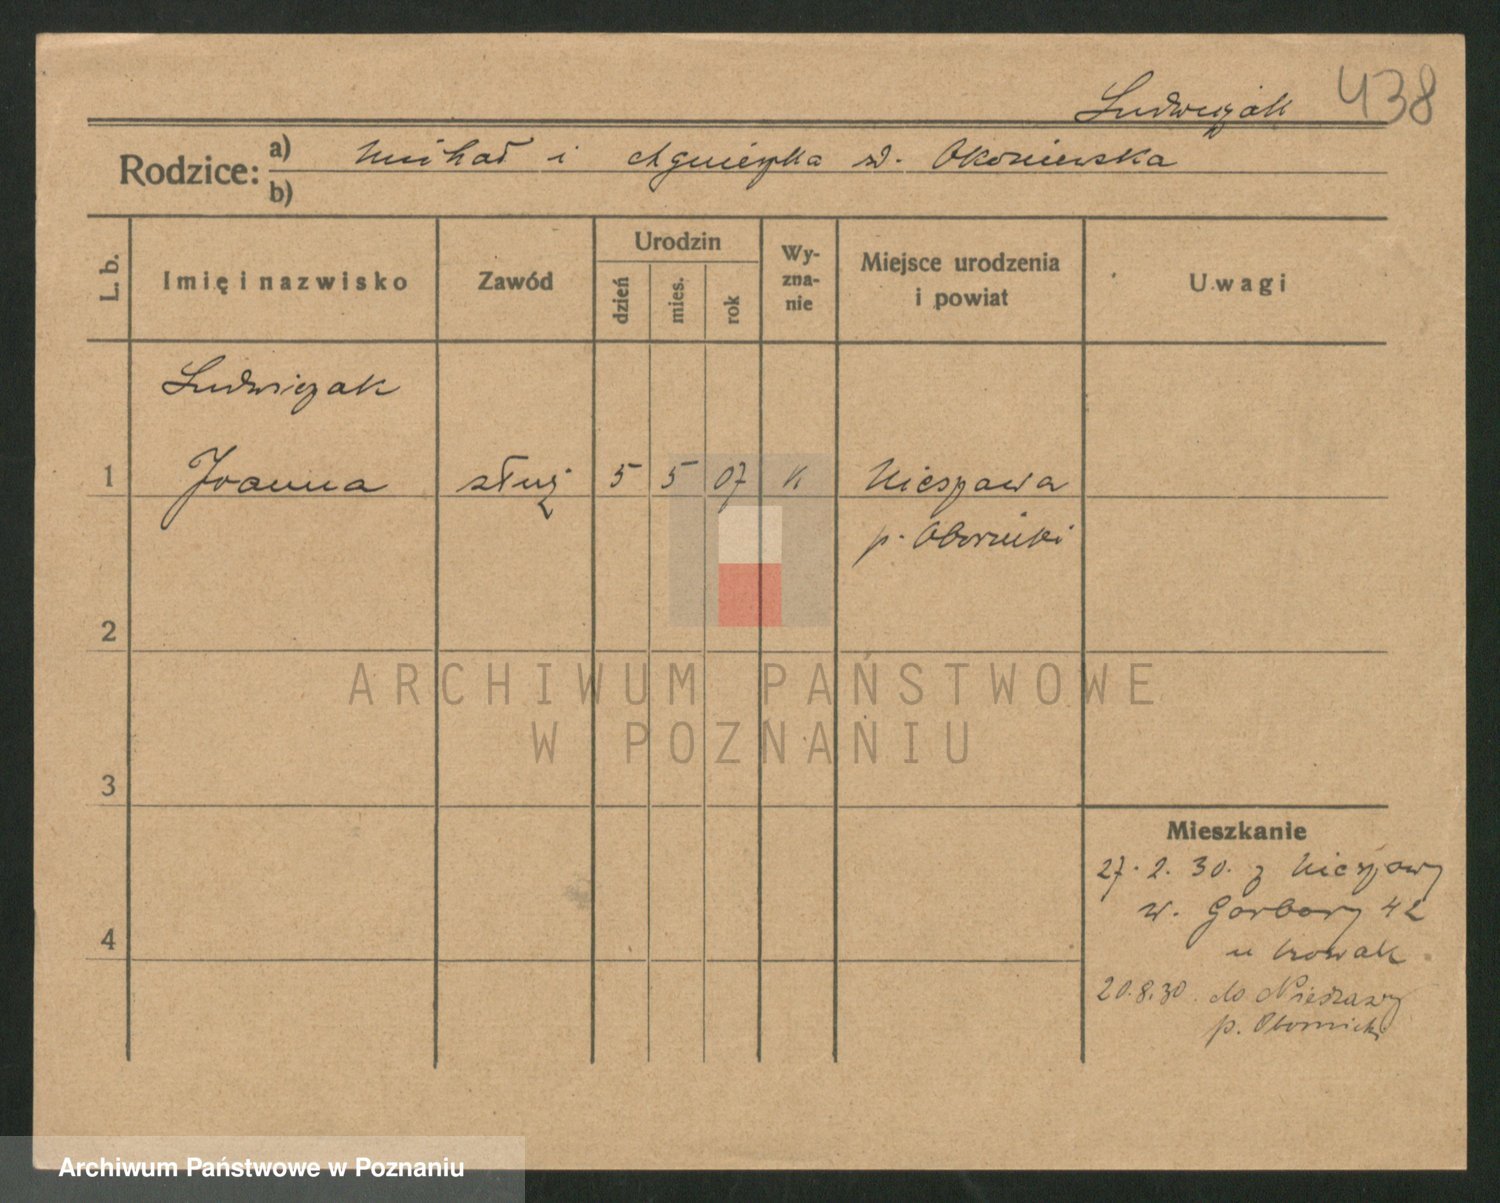 Ludwiczak 438
Rodzice: a) Michał i Agnieszka z d. Okoniewska
b)
L. b. Imię i nazwisko Zawód Urodzin dzień mies. rok Wy-zna-nie Miejsce urodzenia i powiat Uwagi
Ludwiczak
1 Joanna służ 5 5 07 k
p. Oborniki
2
ARCHIWUM PAŃSTWOWE
W POZNANIU
3
Mieszkanie
27. 2. 30. z
w. Garbary 42
4
u Nowak
20.8.30. do
p. Oborniki
Archiwum Państwowe w Poznaniu